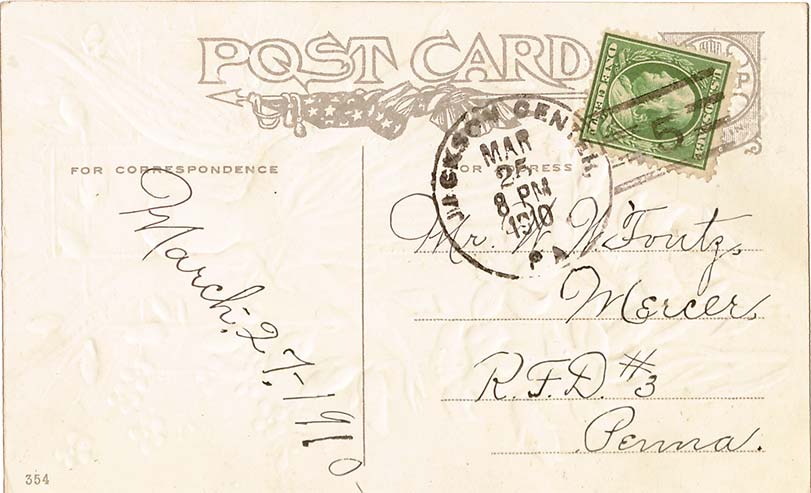 POST CARD
FOR CORRESPONDENCE
JACKSON CENTER,
MAR
25
8 PM
1910
PA
5
March. 27, 1910
Mr. W. W. Foutz,
Mercer,
R.F.D. #3
Penna.
354